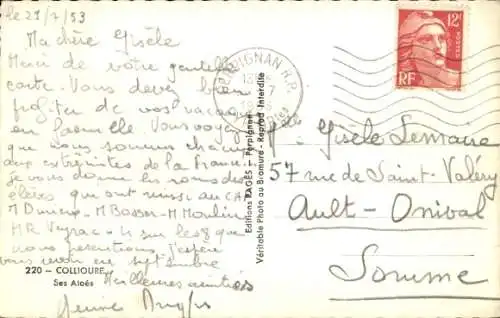 le 29/7/53
Ma chère Gisèle
Merci de votre gentille
carte. Vous devez bien
profiter de vos vacances
en famille. Vous voyez
que nous sommes chacune
aux extrémités de la France
je vous donne les noms des
élèves qui ont réussi au CAP
M Moulin
4 sur les 8 que
nous présentions. J'espère
vous revoir en septembre
Meilleures amitiés
220 - COLLIOURE
Ses Aloès
Editions PAGES - Perpignan
Véritable Photo au Bromure - Reprod. Interdite
PERPIGNAN R.P.
12F
POSTES
RF
Gisèle Lemaire
57 rue de Saint-Valéry
Ault-Onival
Somme